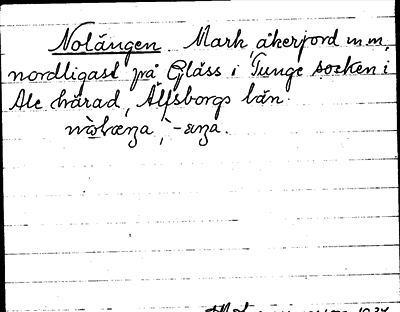 Nolängen. Mark, åkerjord m.m.
nordligast på Glåss i Tunge socken i
Ale härad, Älfsborgs län.